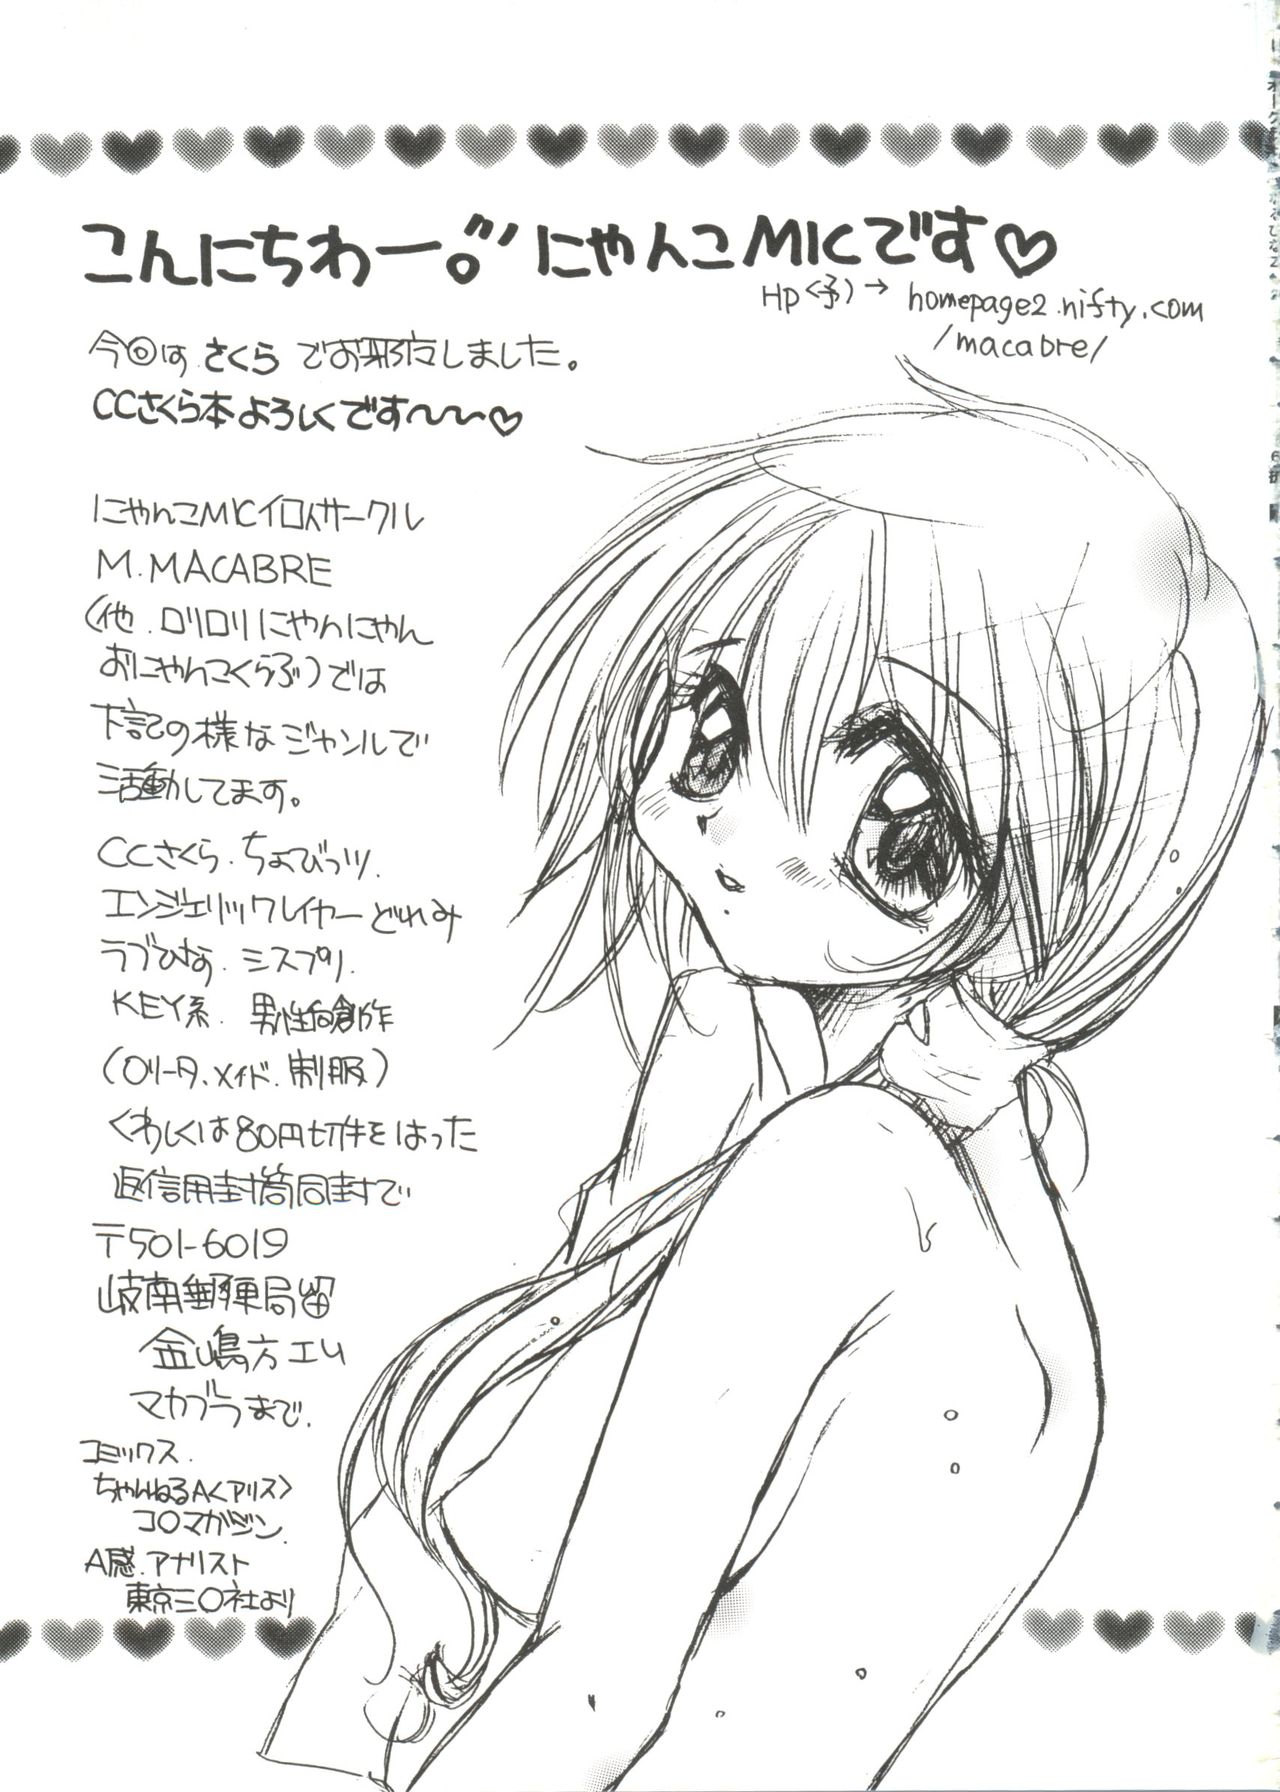 こんにちわー。にゃんこMICです♡
HP(予)→ homepage2.nifty.com
/macabre/
今回は さくら でお邪魔しました。
CCさくら本よろしくです〜〜♡
にゃんこMICイロイサークル
M.MACABRE
(他.ロリロリにゃんにゃん
おにゃんこくらぶ)では
下記の様なジャンルで
活動してます。
CCさくら.ちょびっツ.
エンジェリックレイヤーどれみ
ラブひな.シスプリ.
KEY系.男性向創作
(ロリータ.メイド.制服)
くわしくは80円切手をはった
返信用封筒同封で
〒501-6019
岐南郵便局留
金嶋方エム
マカブラまで.
コミックス.
ちゃんねるA<アリス>
コ○マガジン.
A感.アナリスト
東京三○社より